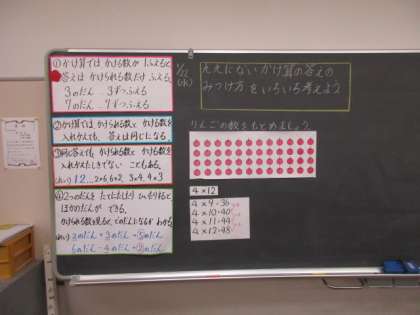 ①かけ算では かける数が 1ふえると、
答えは かけられる数だけ ふえる。
3のだん…3ずつふえる
7のだん…7ずつふえる
②かけ算では かけられる数と かける数を
入れかえても、答えは同じになる
③同じ答えでも、かけられる数と かける数を
入れかえたしきでない こともある。
12…2×6, 6×2 3×4, 4×3
④2つのだんを たしたり ひいたりすると
ほかのだんが できる。
かけられる数を見ると、どのだんになるか わかる。
2のだん+3のだん=5のだん
6のだん-4のだん=2のだん
1/22
(水)
九九にない かけ算の答えの
みつけ方 をいろいろ考えよう
りんごの数を もとめましょう。
4×12
4×9=36
4×10=40
4×11=44
4×12=48